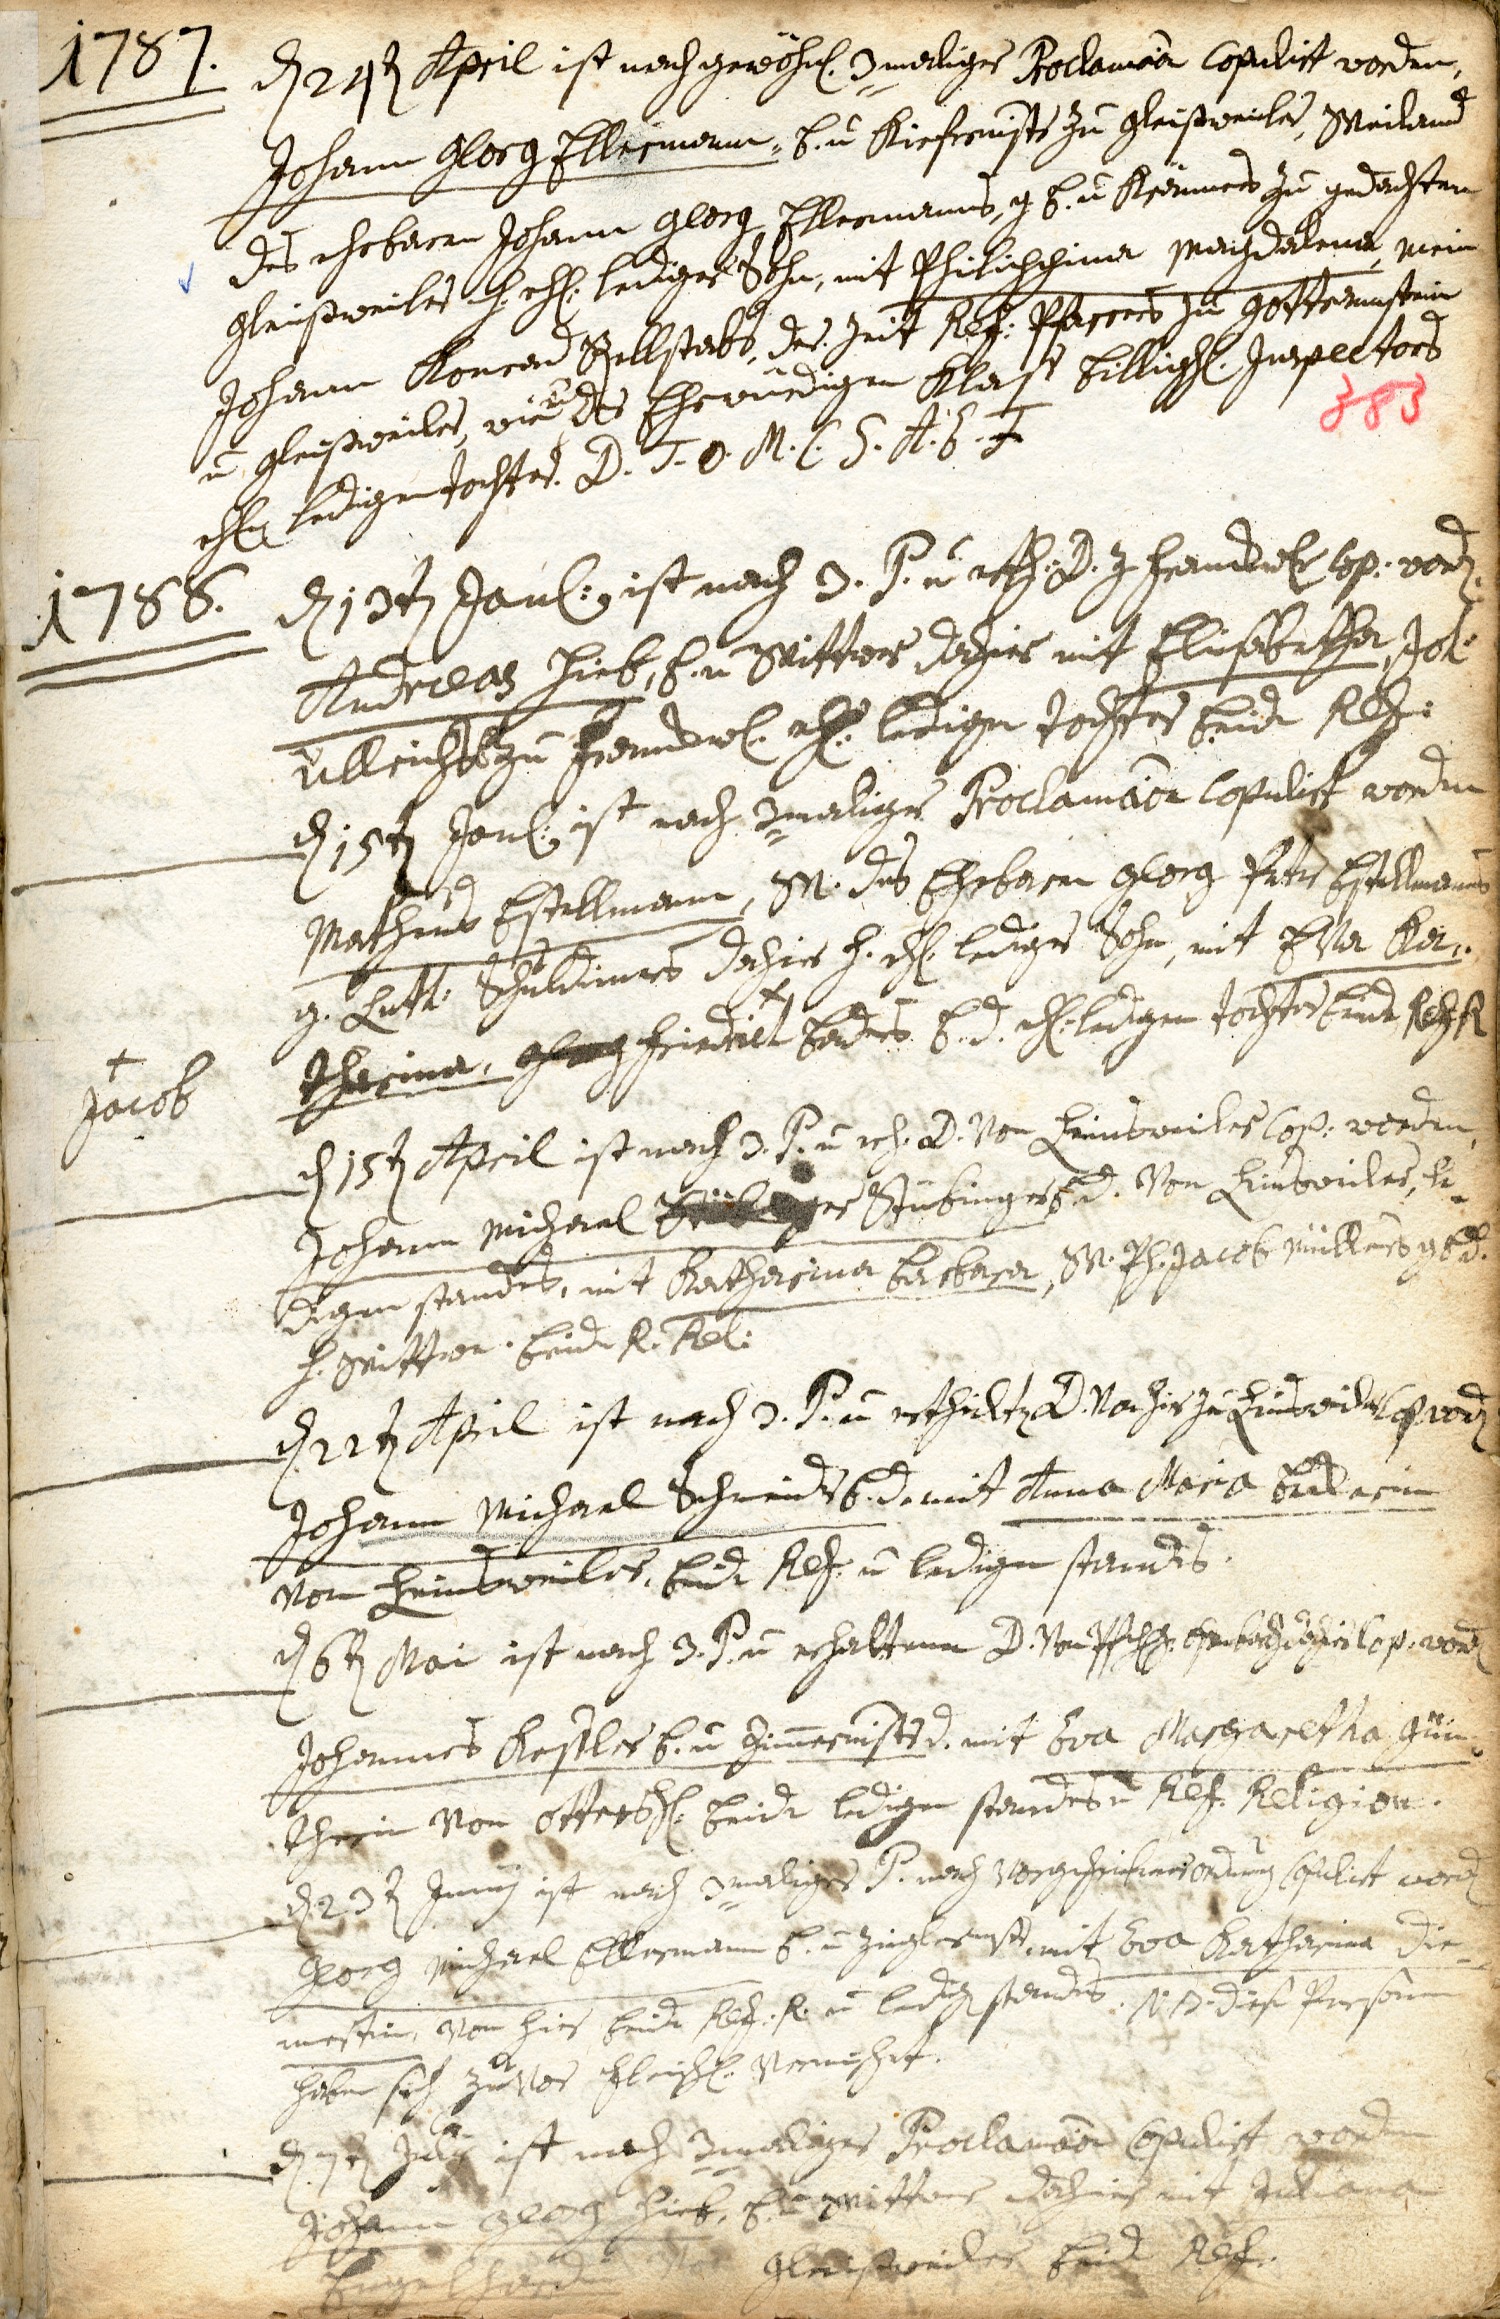 1787. d 24t April ist nach gewöhnl. 3maliger Proclamaõn Copulirt worden,
Johann Georg Ellermann, B. u Kiefermstr zu Gleisweiler, Weiland
des ehrbaren Johann Georg Ellermanns, g. B. u Krämers zu gedachtem
Gleisweiler h. ehl. lediger Sohn, mit Philippina Magdalena, mein
Johann Konrad Rellstabs, der Zeit Ref. Pfarrers zu Gottramstein
u Gleisweiler, wie u des Ehrwürdigen Klass Billigh. Inspectors
383
ehl. ledigen Tochter. D. T. O. M. C. S. A. E. F
1788. d 13t Janl: ist nach 3. P. u erh. D. z Frandwl Cop: word.
Andreas Hieb, B. u Wittwer dahier mit Elisabetha, Joh:
Ullrichs zu Frandwl. ehl. ledigen Tochter beide Ref:
d 15t Janl: ist nach 3maliger Proclamaõn Copulirt worden
Matheus Estellmann, W. des Ehrbaren Georg Peter Estellmanns
g. Luth: Schuldieners dahier h. ehl. lediger Sohn, mit Eva Ka-
tharina, Friedrich Baders B. d. ehl. ledigen Tochter beide Ref. R
+
Jacob
d 15t April ist nach 3. P. u erh. D. von Leinsweiler Cop: worden,
Johann Michael Stübinger B. d. von Leinsweiler, le-
digen standes, mit Katharina Barbara, W. Ph. Jacob Müllers g. B. d.
h. Wittwe. beide R. Rel:
d 22t April ist nach 3. P. u D. von hier zu Leinsweiler Cop word
Johann Michael Schneider B. d. mit Anna Maria
von Leinsweiler, beide Ref. u ledigen standes.
d 6t Mai ist nach 3. P. u erhaltenem D. von dahier Cop. word
Johannes Kestler B. u Zimermstr d. mit Eva Margaretha Gün-
therin von Ottersh. beide ledigen standes u Ref. Religion.
d 23t Junij ist nach 3maliger P. nach vorgeschriebener ordnung Copulirt word
Georg Michael Ellermann B. u Zieglermstr, mit Eva Katharina Die-
mestin, von hier beide Ref. R. u ledig standes. N. B. diese Personen
haben sich zuvor fleischl. vermischt.
d 7t July ist nach 3maliger Proclamaõn Copulirt worden
Johann Georg Hieb, B. u Wittwer dahier mit Juliana
Engelhardin von Gleisweiler beide Ref.